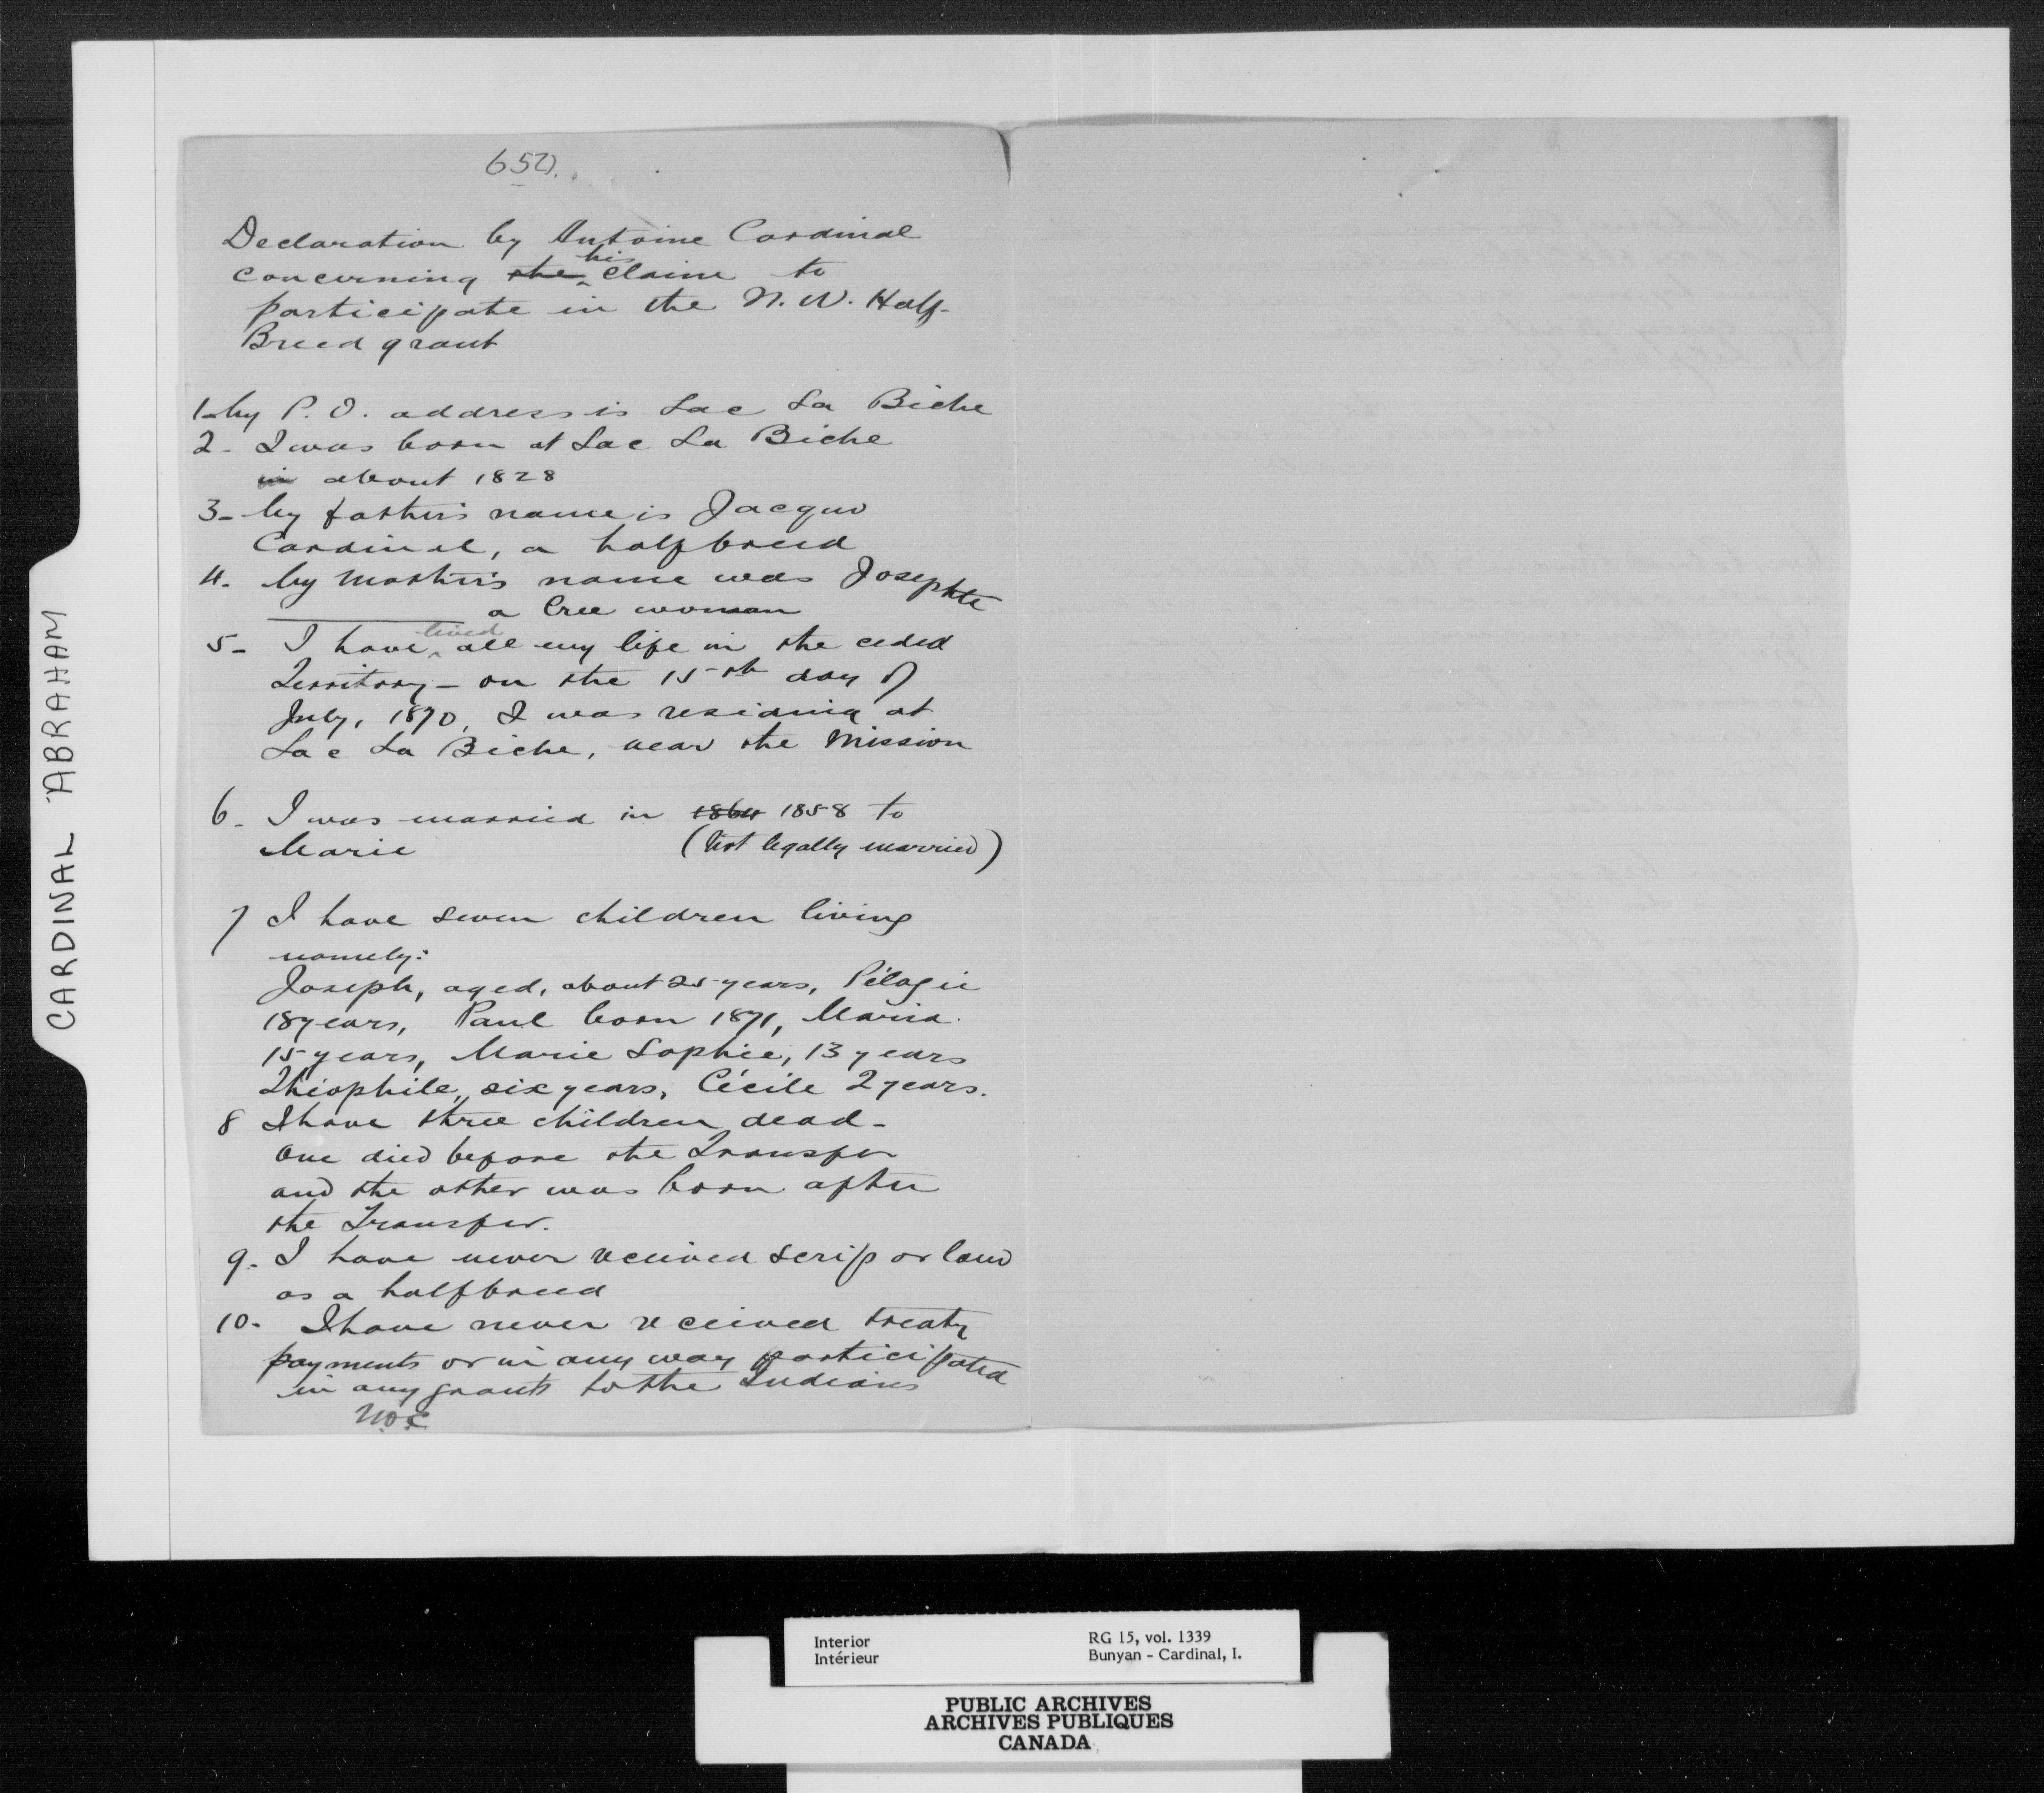 650.
Declaration by Antoine Cardinal
concerning the his claim to
participate in the N. W. Half-
Breed grant
1- My P. O. address is Lac La Biche
2- I was born at Lac La Biche
in about 1828
3- My father's name is Jacques
Cardinal, a halfbreed
4- My Mother's name was Josephte
a Cree woman
5- I have lived all my life in the ceded
Territory - on the 15th day of
July, 1870, I was residing at
Lac La Biche, near the Mission
6- I was married in 1864 1858 to
Marie (Not legally married)
7 I have seven children living
namely:
Joseph, aged, about 25 years, Pélagie
18 years, Paul born 1871, Maria
15 years, Marie Sophie, 13 years
Théophile, six years, Cécile 2 years.
8 I have three children dead -
One died before the Transfer
and the other was born after
the Transfer.
9- I have never received scrip or land
as a halfbreed
10- I have never received treaty
payments or in any way participated
in any grants to the Indians
CARDINAL ABRAHAM
Interior RG 15, vol. 1339
Intérieur Bunyan - Cardinal, I.
PUBLIC ARCHIVES
ARCHIVES PUBLIQUES
CANADA